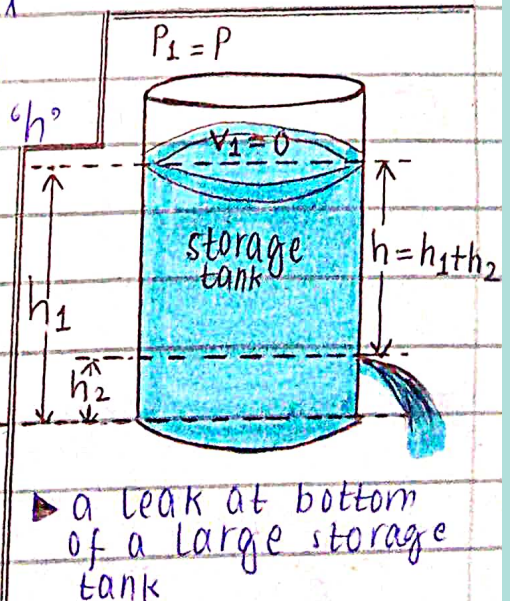 P1 = P
"h"
V1 = 0
storage
tank
h = h1+h2
h1
h2
▶ a leak at bottom
of a large storage
tank